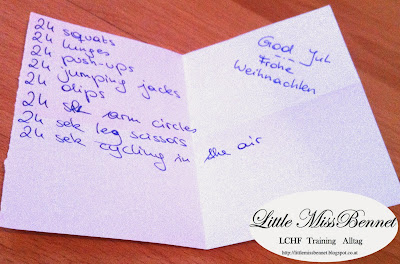 24 squats
24 lunges
24 push-ups
24 jumping jacks
24 dips
24 sek arm circles
24 sek leg scissors
24 sek cycling in the air
God Jul
Frohe
Weihnachten
Little MissBennet
LCHF Training Alltag
http://littlemissbennet.blogspot.co.at